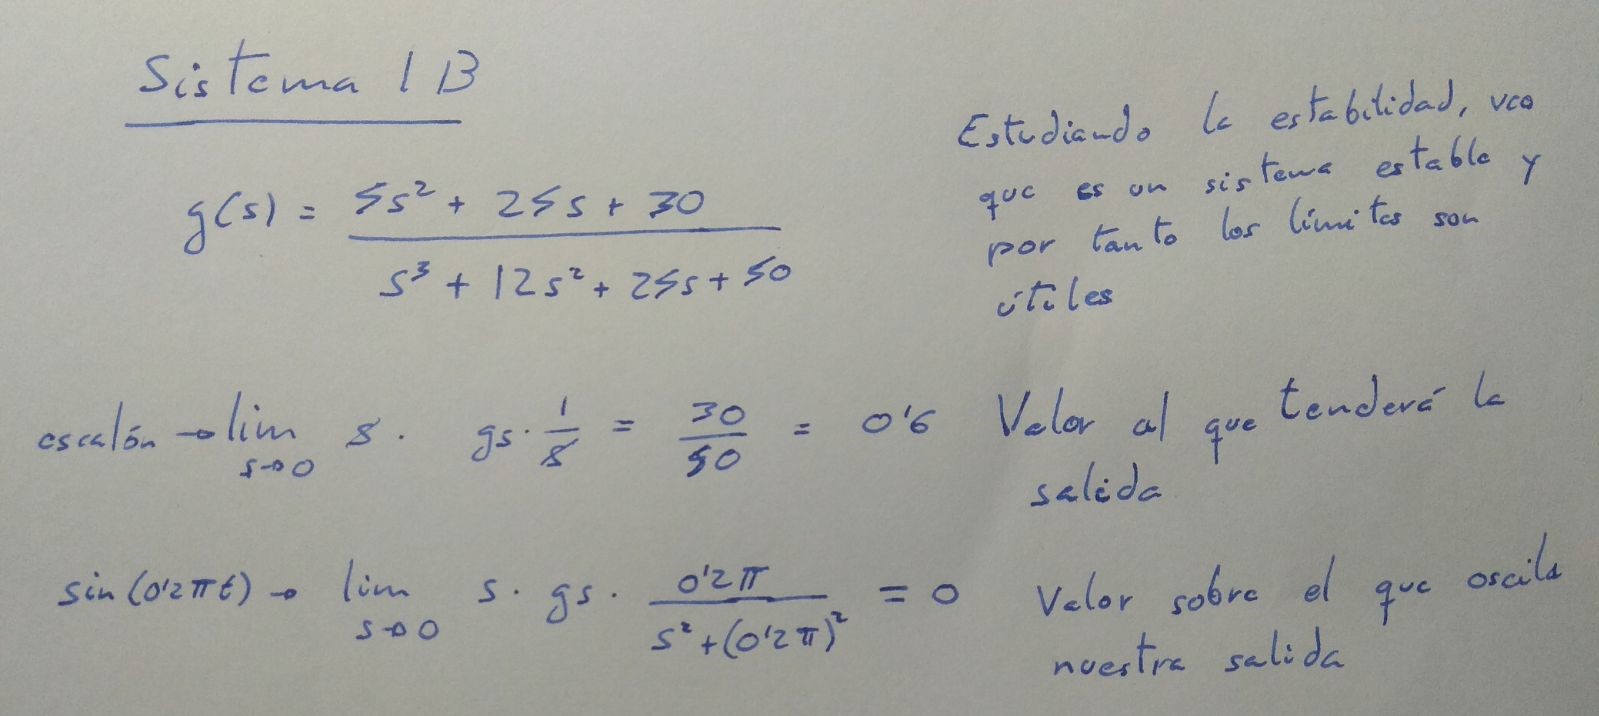 Sistema 1B
g(s) = 5s² + 25s + 30
s³ + 12s² + 25s + 50
Estudiando la estabilidad, veo
que es un sistema estable y
por tanto los límites son
útiles
escalón → lim s · gs · 1/s = 30/50 = 0'6 Valor al que tenderá la
s→0
salida
sin(0'2πt) → lim s · gs · 0'2π / s² + (0'2π)² = 0 Valor sobre el que oscila
s→0
nuestra salida